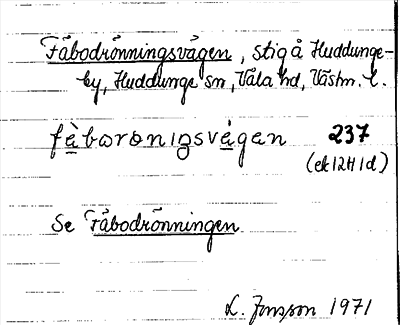 Fäbodrönningsvägen, stig å Huddunge-
by, Huddunge sn, Våla hd, Västm. l.
fàboroniŋsvágen 237
(ek 12H1d)
Se Fäbodrönningen
L. Jonsson 1971